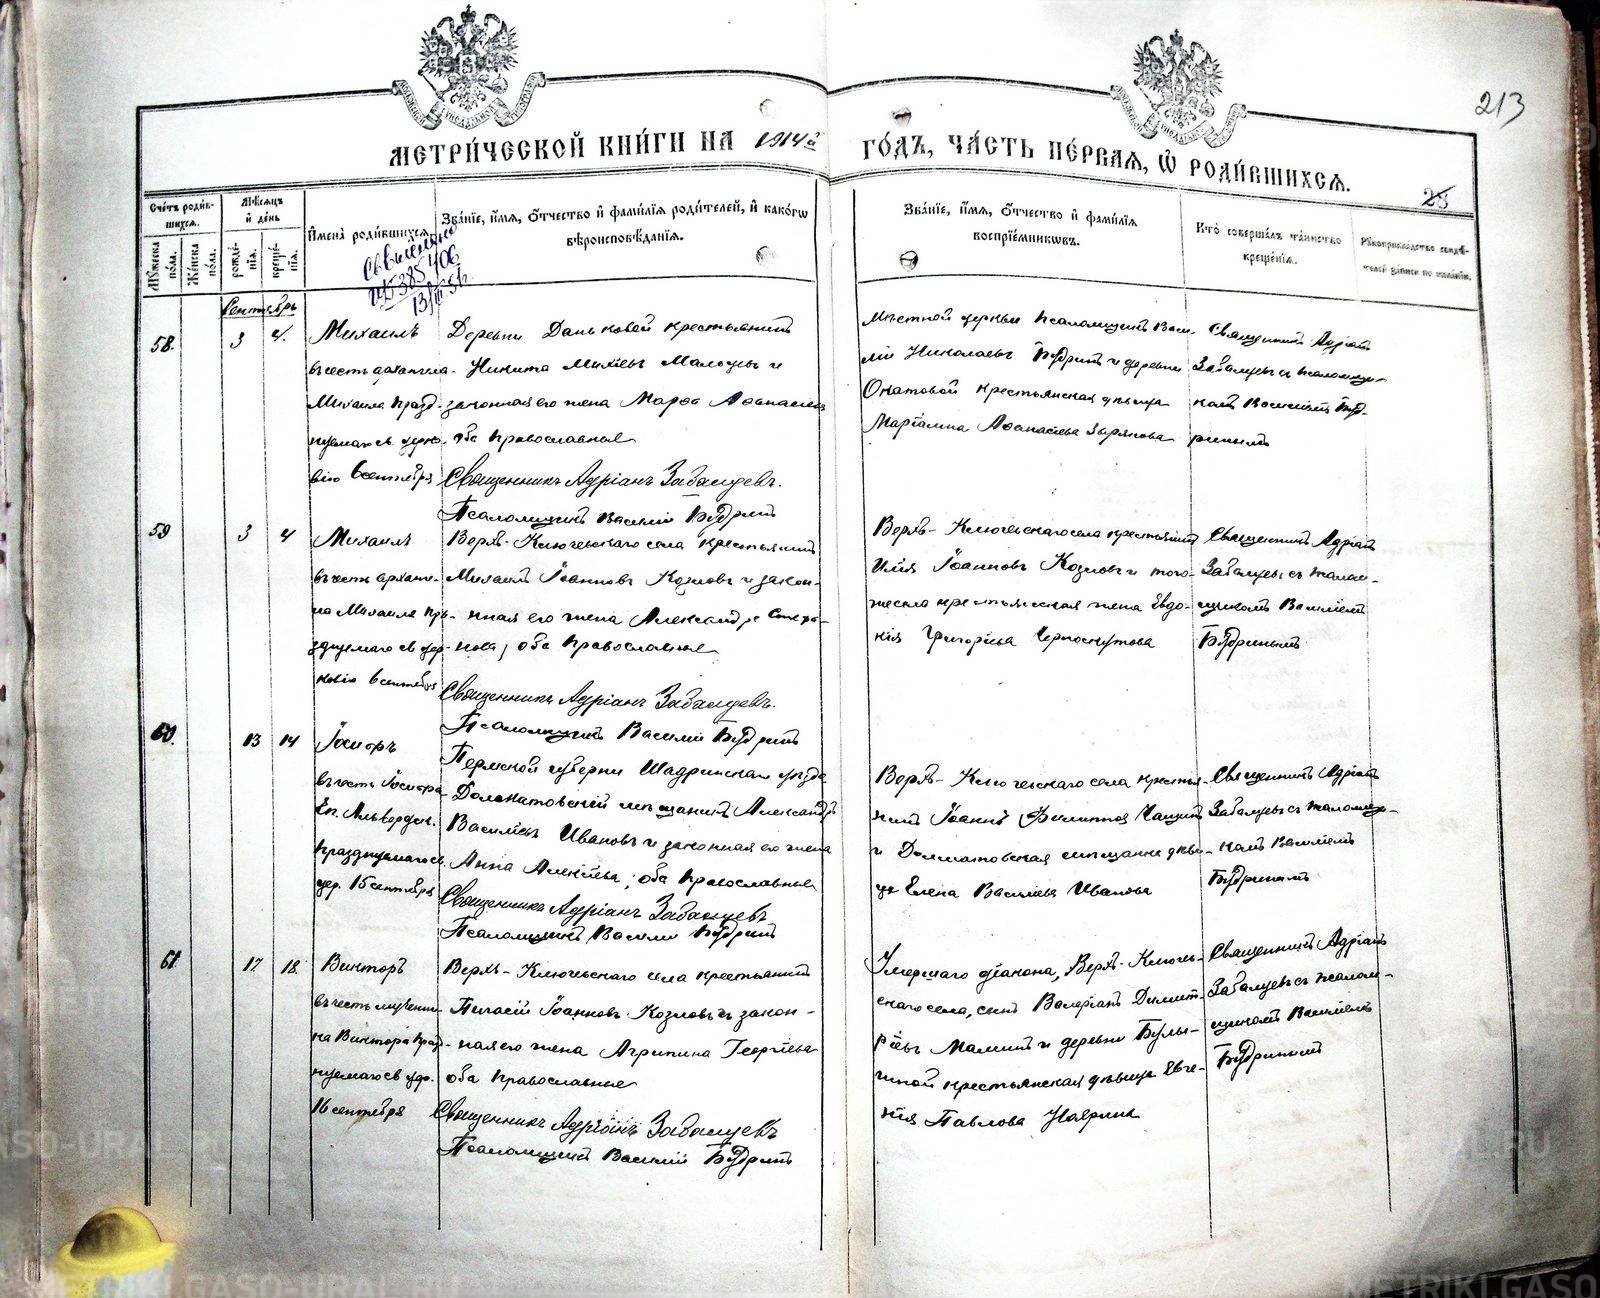 213
МЕТРИ́ЧЕСКОЙ КНИ́ГИ НА 1914й ГО́ДЪ, ЧА́СТЬ ПЕ́РВАЯ, Ѡ РОДИ́ВШИХСЯ.
25
Сче́тъ роди́в-
шихся.
Мѣ́сяцъ
и де́нь
Мꙋ́жеска по́ла.
Же́нска по́ла.
рожде́-
нїя.
креще́-
нїя.
И҆мена̀ роди́вшихся.
Зва́нїе, и҆́мя, ѻ҆́тчество и҆ фами́лїя роди́телей, и҆ како́гѡ
вѣроисповѣ́данїя.
Зва́нїе, и҆́мя, ѻ҆́тчество и҆ фами́лїя
воспрїе́мникѡвъ.
Кто̀ соверша́лъ та́инство
креще́нїя.
Рꙋкоприкла́дство свидѣ́-
телей за́писи по жела́нїю.
385406
Сентябрь
58.
3
4.
Михаилъ
въ честь архангела
Михаила празд-
нуемаго св. церко-
вію 6 сентября
Деревни Даньковой крестьянинъ
Никита Мальцевъ и
законная его жена Марѳа Аѳанасьева
оба православные
Священникъ Адріанъ Забалуевъ.
Псаломщикъ Василій Будринъ
Мѣстной церкви псаломщикъ Васи-
лій Николаевъ Будринъ и деревни
крестьянская дѣвица
Маріамна Аѳанасьева Зырянова
Священникъ Адріанъ
Забалуевъ съ псаломщи-
комъ Василіемъ Буд-
ринымъ
59
3
4
Михаилъ
въ честь арханге-
ла Михаила пра-
зднуемаго св. цер-
ковію 6 сентября
Верхъ-Ключевскаго села крестьянинъ
Михаилъ Іоанновъ Козловъ и закон-
ная его жена Александра
оба православные
Священникъ Адріанъ Забалуевъ.
Псаломщикъ Василій Будринъ
Верхъ-Ключевскаго села крестьянинъ
Илія Іоанновъ Козловъ и того-
же села крестьянская жена Евдо-
кія Григорьева
Священникъ Адріанъ
Забалуевъ съ псалом-
щикомъ Василіемъ
Будринымъ
60.
13
14
Іосифъ
въ честь Іосифа
Еп. Альвердск.
празднуемаго св.
цер. 15 сентября
Пермской губерніи Шадринскаго уѣзда
Долматовскій мѣщанинъ Александръ
Васильевъ Ивановъ и законная его жена
Анна Алексѣева; оба православные
Священникъ Адріанъ Забалуевъ
Псаломщикъ Василій Будринъ
Верхъ-Ключевскаго села крестья-
нинъ Іоаннъ
и Долматовская мѣщанка дѣви-
ца Елена Васильева Иванова
Священникъ Адріанъ
Забалуевъ съ псаломщи-
комъ Василіемъ
Будринымъ
61.
17
18.
Викторъ
въ честь мучени-
ка Виктора празд-
нуемаго св. цер.
16 сентября
Верхъ-Ключевскаго села крестьянинъ
Пигасій Іоанновъ Козловъ и закон-
ная его жена Агрипина Георгіева
оба православные
Священникъ Адріанъ Забалуевъ
Псаломщикъ Василій Будринъ
Умершаго діакона, Верхъ-Ключев-
скаго села, сынъ Валеріанъ Димит-
ріевъ Маминъ и деревни
крестьянская дѣвица Евге-
нія Павлова
Священникъ Адріанъ
Забалуевъ съ псалом-
щикомъ Василіемъ
Будринымъ
METRIKI.GASO-URAL.RU